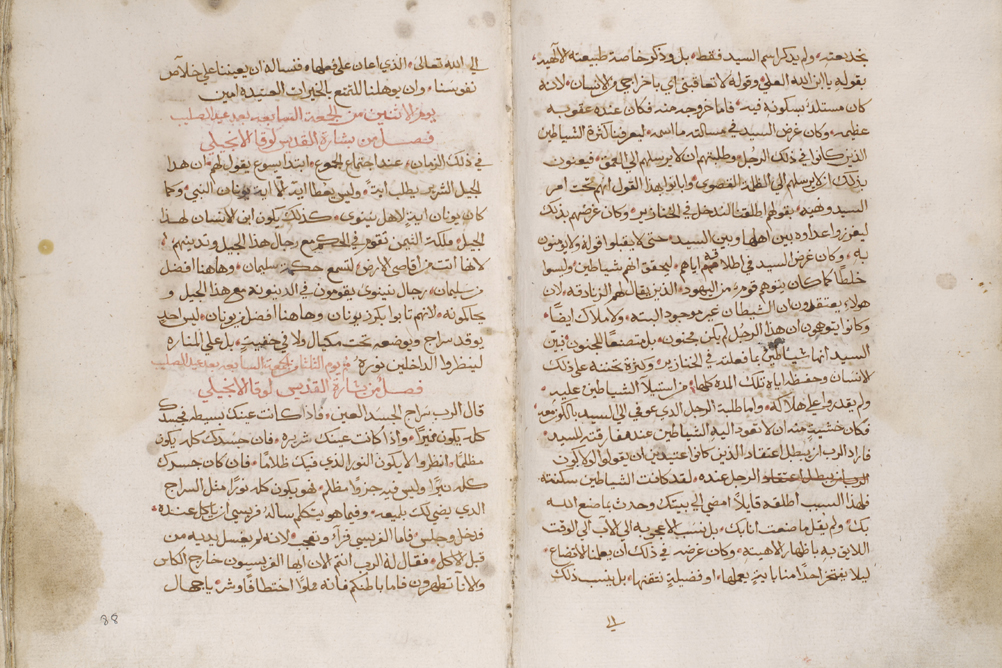 بخدعته ولم يذكر اسم السيد فقط بل وذكر خاصة طبيعته الالهيه
بقوله يا ابن الله العلي وقوله لا تعاقبني اي باخراجي من الانسان لانه
كان مستلد بسكونه فيه فاما خروجه منه فكان عنده عقوبه
عظيمه وكان غرض السيد في مسالته ما اسمه ليعرفنا كثرة الشياطين
الذين كانوا في ذلك الرجل وطلبتهم ان لا يرسلهم الي العمق فيعنون
بذلك ان لا يرسلهم الي الظلمة القصوي وابانوا بهذا القول انهم تحت امر
السيد ونهيه بقولهم اطلقنا لندخل في الخنازير وكان غرضهم بذلك
ليغرزوا عداوه بين اهلها وبين السيد حتي لا يقبلوا قوله ولا يومنون
به وكان غرض السيد في اطلاقه اياهم ليحقق انهم شياطين وليسوا
خلقا كما كان يتوهم قوم من اليهود الذين يقال لهم الزنادقه لان
هولاء يعتقدون ان الشيطان غير موجود البته ولا ملاك ايضا
وكانوا يتوهمون ان هذا الرجل لم يكن مجنون بل متصنعا للجنون فبين
السيد انها شياطين بما فعلته في الخنازير وكثرة تحننه علي ذلك
الانسان وحفظه اياه تلك المده كلها من استيلا الشياطين عليه
ولم يقدروا علي هلاكه واما طلبة الرجل الذي عوفي الي السيد بالكون معه
فكان خشية منه ان لا تعود اليه الشياطين عند مفارقته للسيد
فاراد الرب ان يبطل اعتقاد الذين كانوا عتيدين ان يقولوا لولا كون
الرجل عنده لقد كانت الشياطين سكنته
فلهذا السيد اطلقه قايلا امضي الي بيتك وحدث بما صنع الله
بك ولم يقل ما صنعت انا بك بل ينسب الاعجوبه الي الاب الي الوقت
اللايق به باظهار الاهيته وكان غرضه في ذلك ان يعلمنا الاتضاع
ليلا يفتخر احدا منا باية يعملها او فضيلة يقتنيها بل ينسب ذلك
الي الله تعالي الذي اعان علي فعلها فنساله ان يعيننا علي خلاص
نفوسنا وان يوهلنا للتمتع بالخيرات العتيده امين
يوم الاثنين من الجمعة السابعه بعد عيد الصليب
فصل من بشارة القديس لوقا الانجيلي
في ذلك الزمان عند اجتماع الجموع ابتدا يسوع يقول لهم ان هذا
الجيل الشرير يطلب اية وليس يعطا اية الا اية يونان النبي وكما
كان يونان اية لاهل نينوي كذلك يكون ابن الانسان لهذا
الجيل ملكة التيمن تقوم في الحكم مع رجال هذا الجيل وتدينهم
لانها اتت من اقاصي الارض لتسمع حكمة سليمان وهاهنا افضل
من سليمان رجال نينوي يقومون في الدينونه مع هذا الجيل و
يحاكمونه لانهم تابوا بكرز يونان وهاهنا افضل من يونان ليس احد
يوقد سراج ويوضعه تحت مكيال ولا في خفية بل علي المناره
لينظروا الداخلين نوره يوم الثلثا من الجمعة السابعه بعد عيد الصليب
فصل من بشارة القديس لوقا الانجيلي
قال الرب سراج الجسد العين فاذا كانت عينك بسيطه فجسدك
كله يكون نيرا واذا كانت عينك شريره فان جسدك كله يكون
مظلما انظروا الا يكون النور الذي فيك ظلاما فان كان جسدك
كله نيرا وليس فيه جزوا مظلم فهو يكون كله نورا مثل السراج
الذي يضي لك بلميعه وفيما هو يتكلم ساله فريسي ان ياكل عنده
فدخل وجلس فاما الفريسي فراه وتعجب لانه لم يغسل يديه من
قبل الاكل فقال له الرب انتم الان ايها الفريسيون خارج الكاس
والانا تطهرون فاما باطنكم فانه مملوا اختطافا وشر يا جهال
88